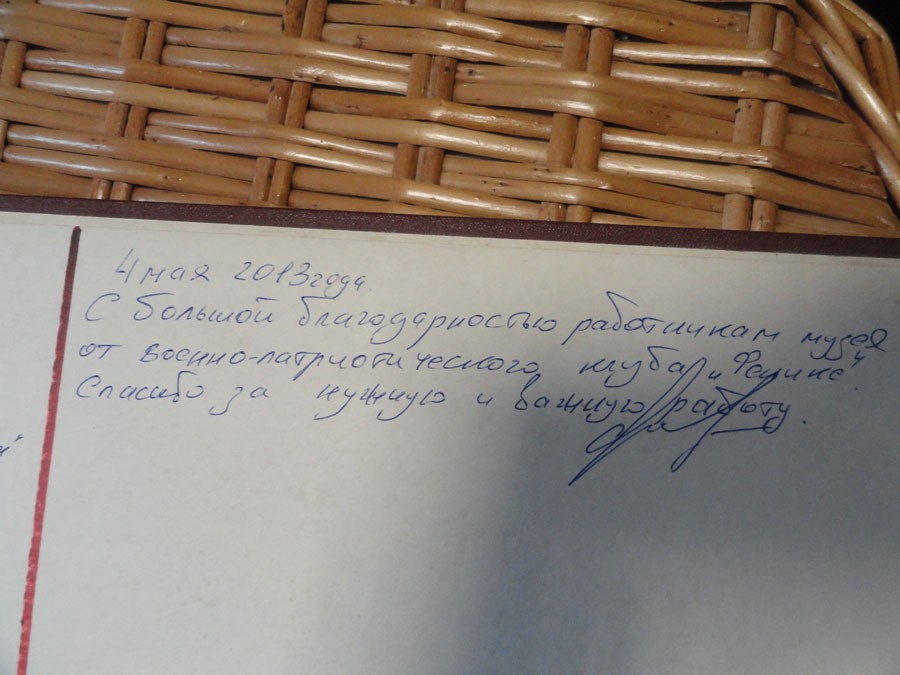 4 мая 2013 года.
С большой благодарностью работникам музея
от военно-патриотического клуба
Спасибо за нужную и важную работу.